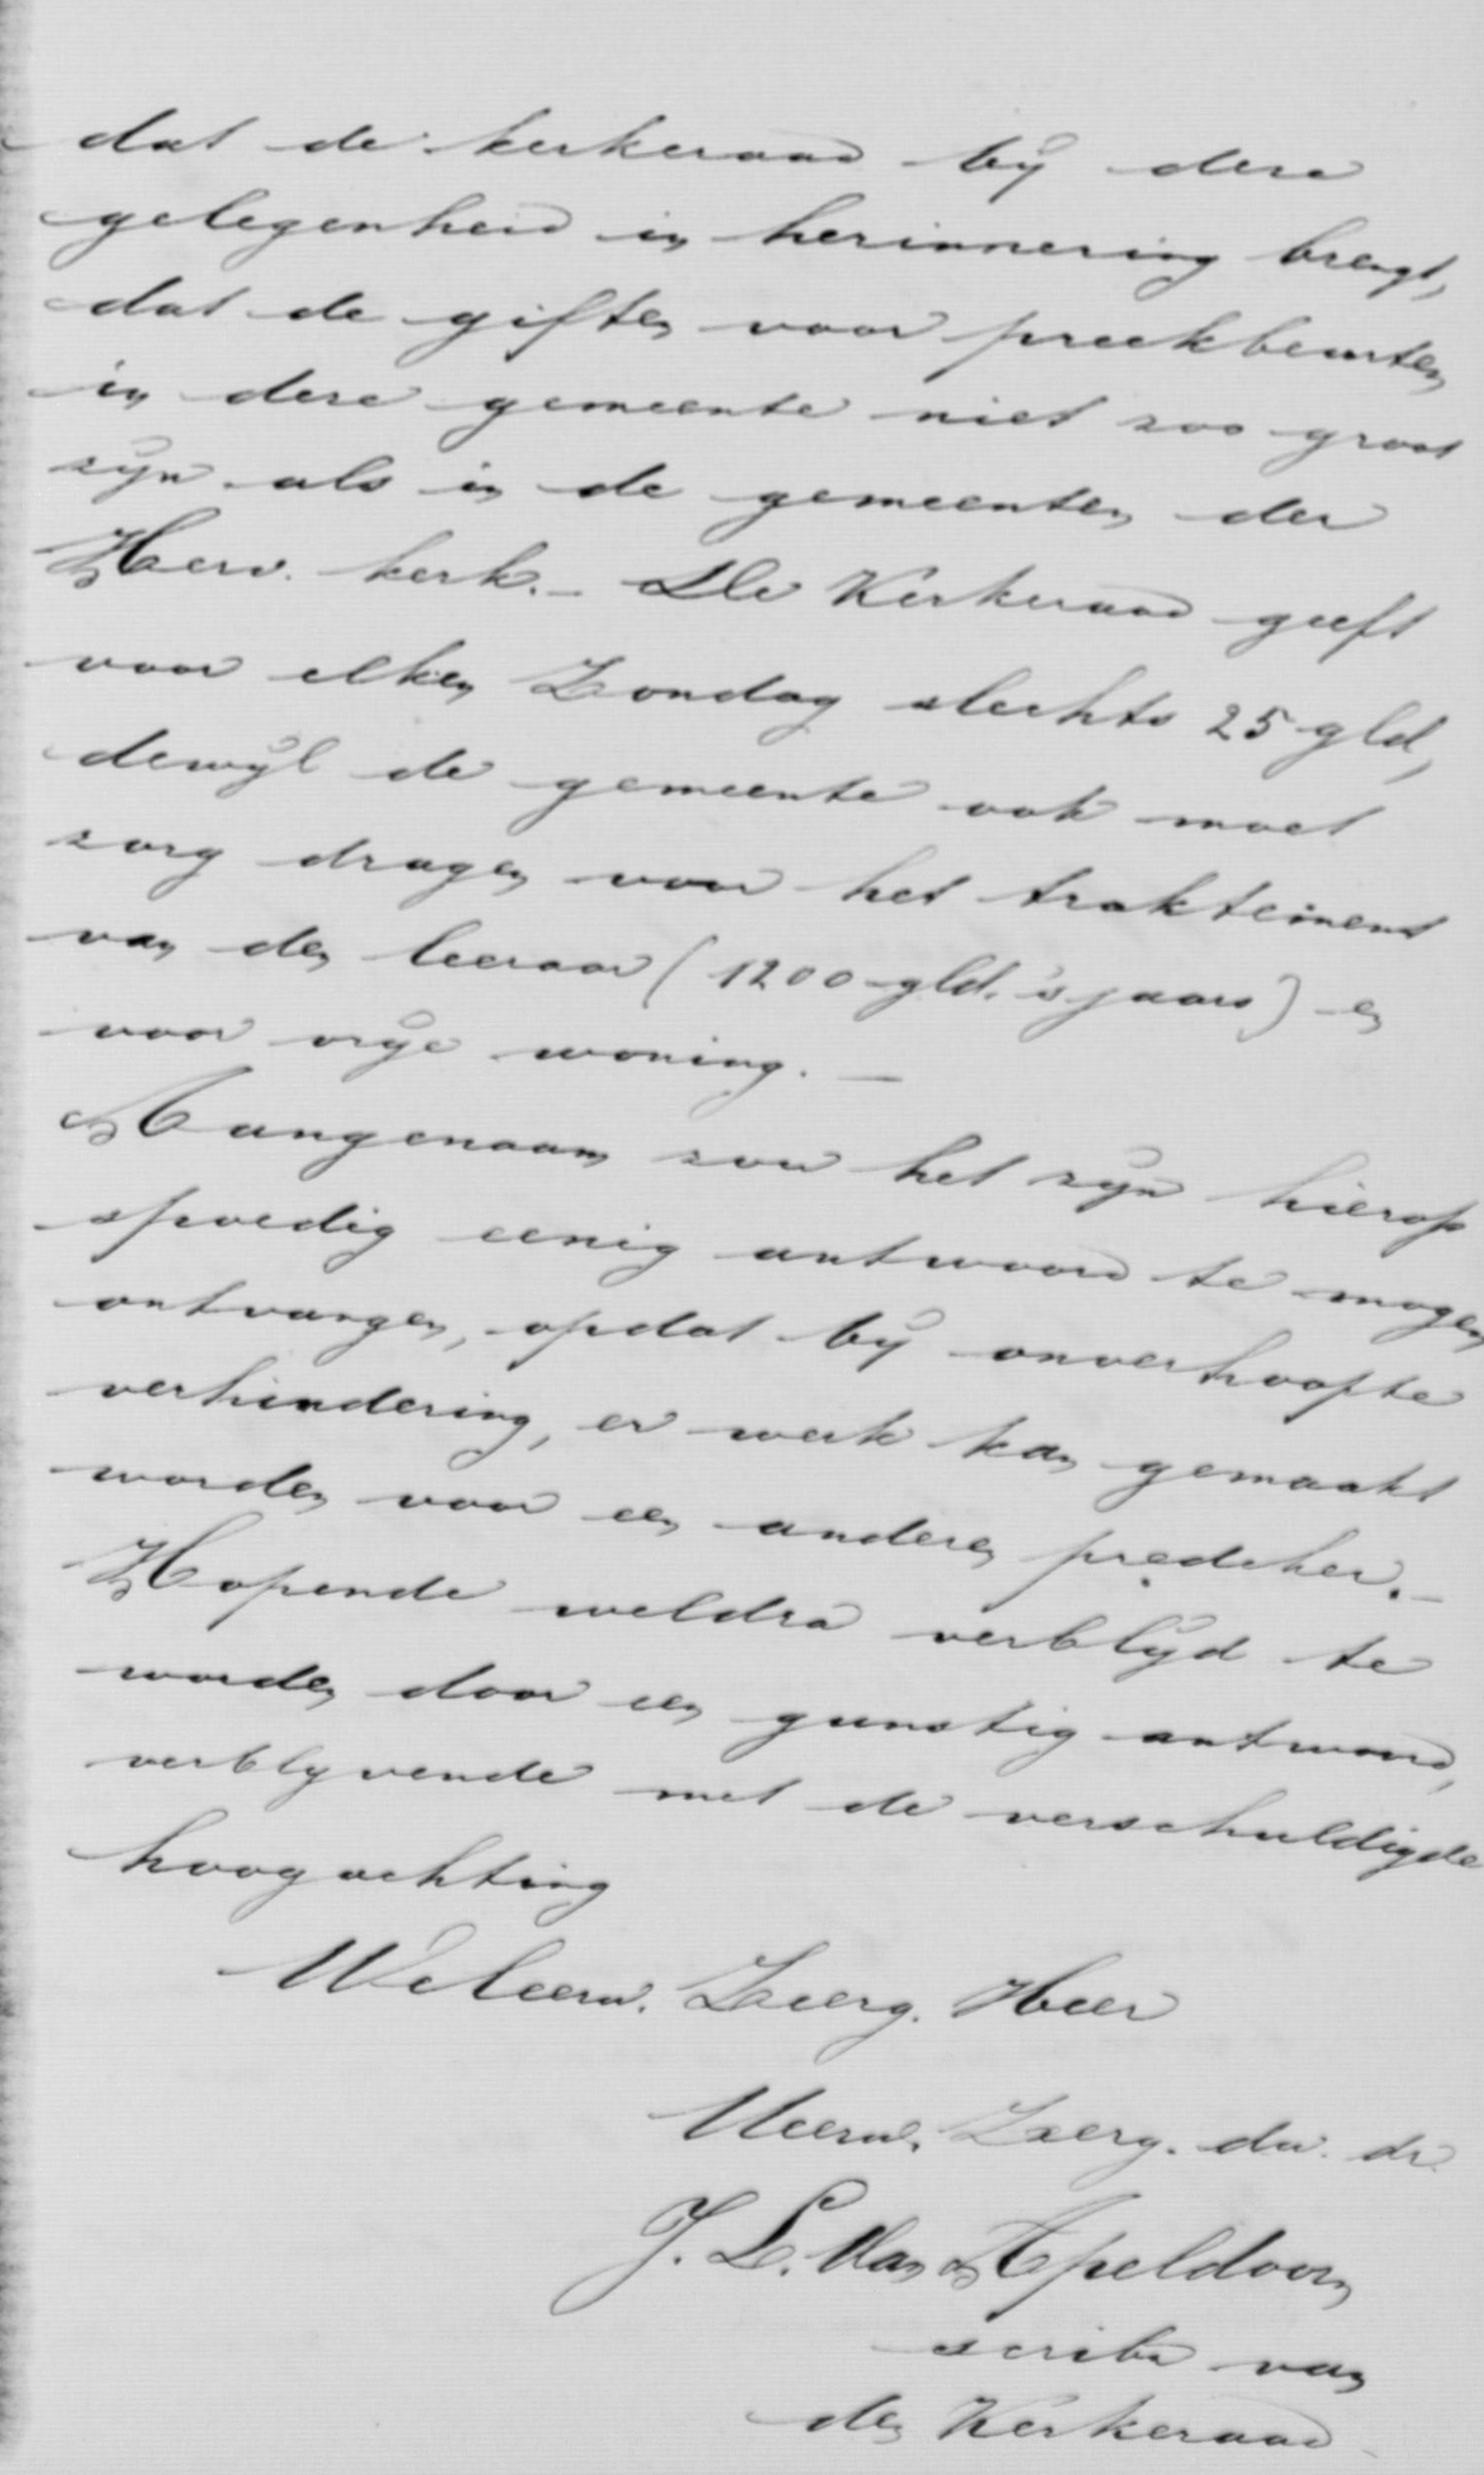 dat de kerkeraad bij deze
gelegenheid in herinnering brengt,
dat de giften voor preekbeurten
in deze gemeente niet zoo groot
zijn als in de gemeenten der
Herv. kerk. — De Kerkeraad geeft
voor elken Zondag slechts 25 gld,
dewijl de gemeente ook moet
zorg dragen voor het traktement
van den leeraar (1200 gld. 's jaars) en
voor vrije woning. —
Aangenaam zou het zijn hierop
spoedig eenig antwoord te mogen
ontvangen, opdat bij onverhoopte
verhindering, er werk kan gemaakt
worden voor een anderen prediker. —
Hopende weldra verblijd te
worden door een gunstig antwoord,
verblyvende met de verschuldigde
hoogachting
WelEerw. Zeerg. Heer
UEerw. Zeerg. dw. dr.
J. L. Van Apeldoorn
scriba van
den Kerkeraad